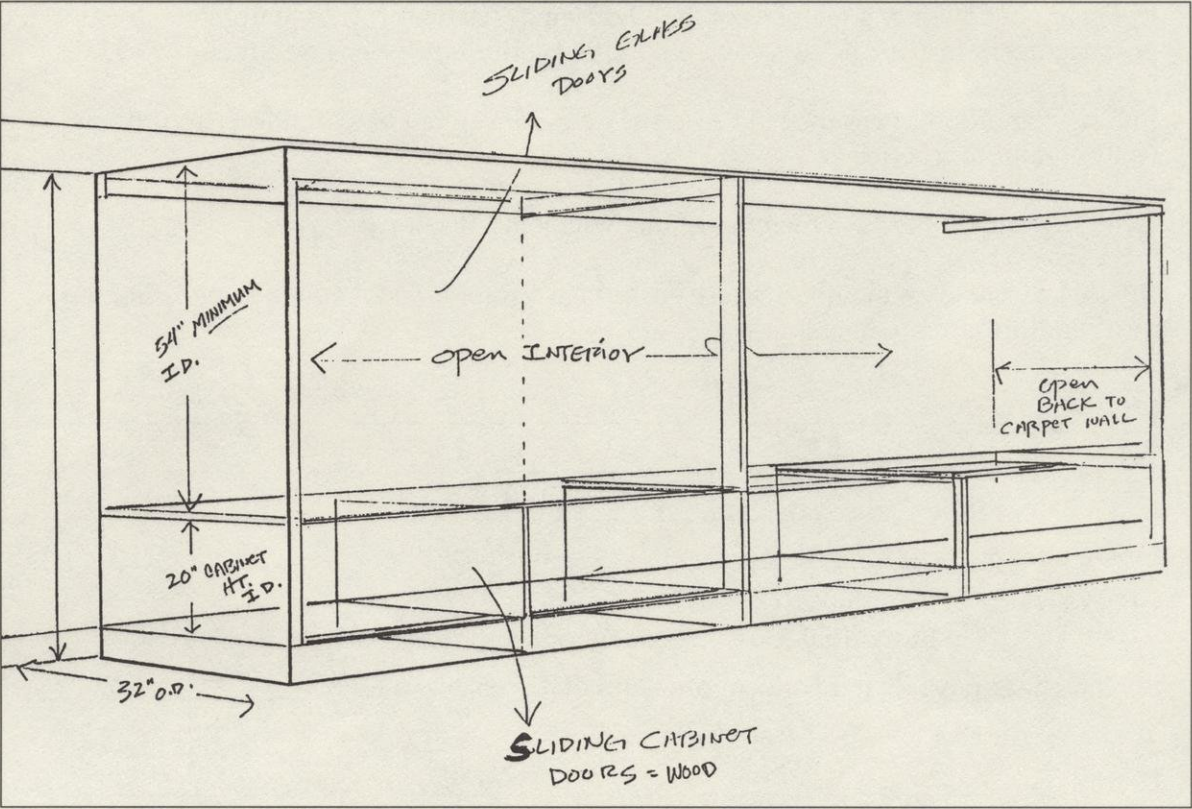 SLIDING GLASS
DOORS
54" MINIMUM
I.D.
open INTERIOR
open
BACK TO
CARPET WALL
20" CABINET
HT.
I.D.
32" O.D.
SLIDING CABINET
DOORS = WOOD